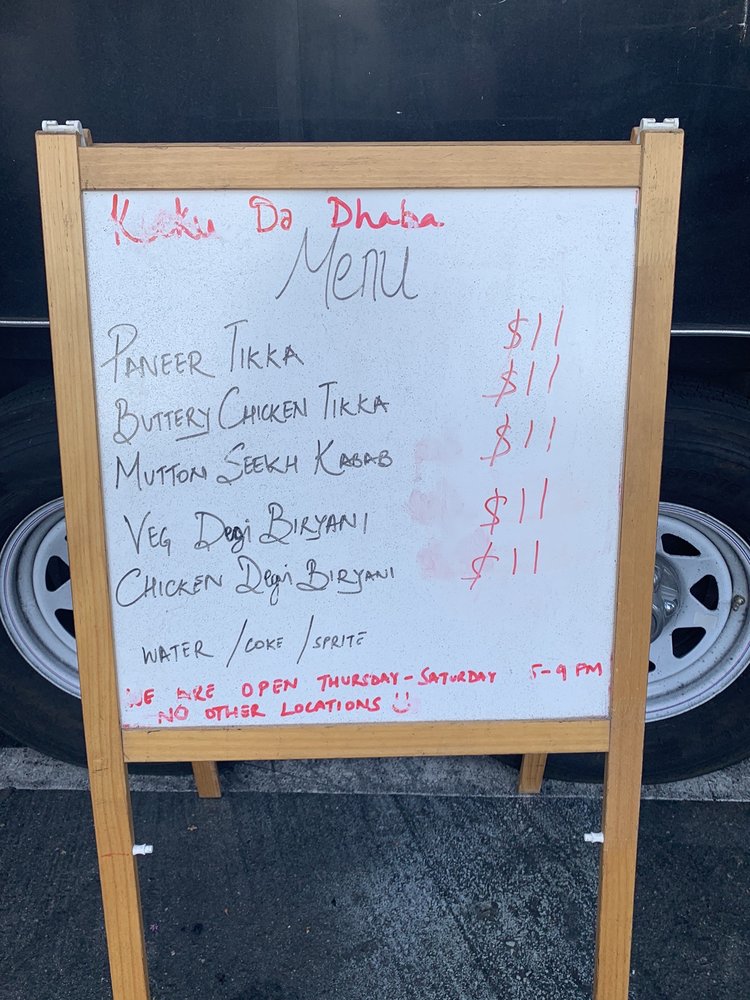 Kuku Da Dhaba
Menu
PANEER TIKKA $11
BUTTERY CHICKEN TIKKA $11
MUTTON SEEKH KABAB $11
VEG Degi BIRYANI $11
CHICKEN Degi BIRYANI $11
WATER / COKE / SPRITE
WE ARE OPEN THURSDAY - SATURDAY 5-9 PM
NO OTHER LOCATIONS